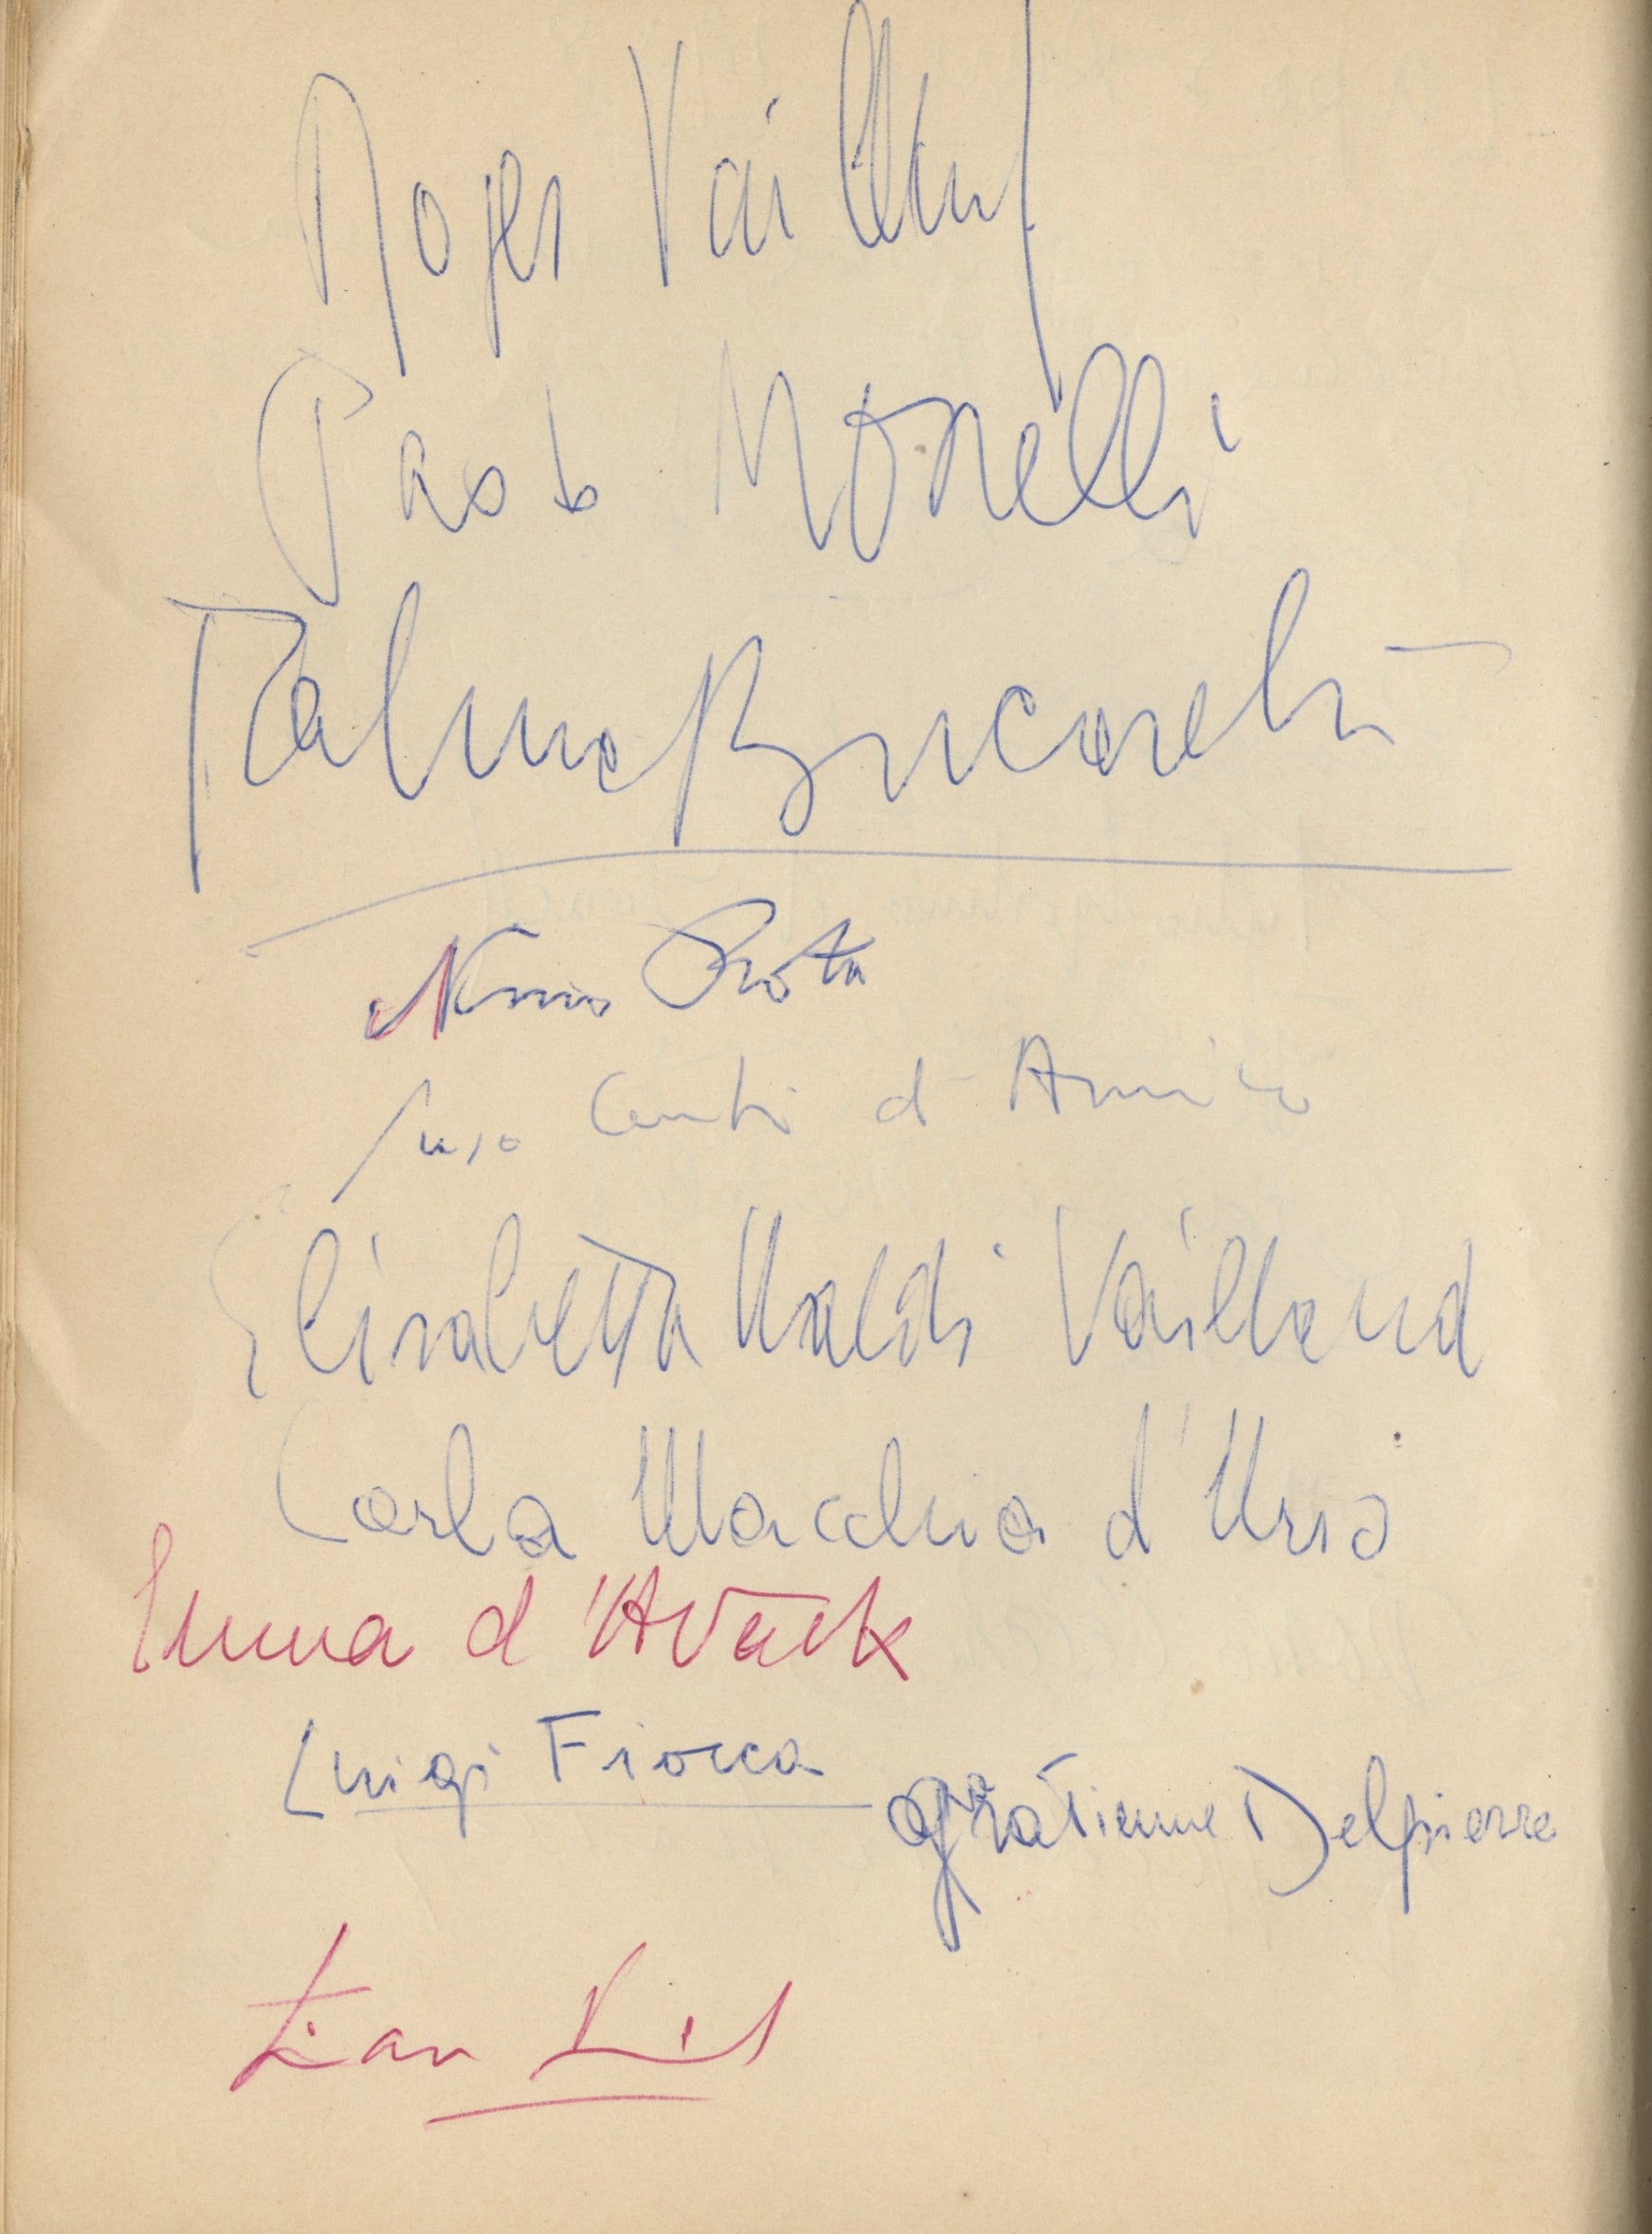 Roger Vailland
Paolo Monelli
Palma Bucarelli
Nino Rota
Suso Cecchi d'Amico
Elisabetta Naldi Vailland
Carla Macchia d'Urso
Emma d'Avack
Luigi Fiocca
gratienne Delpierre